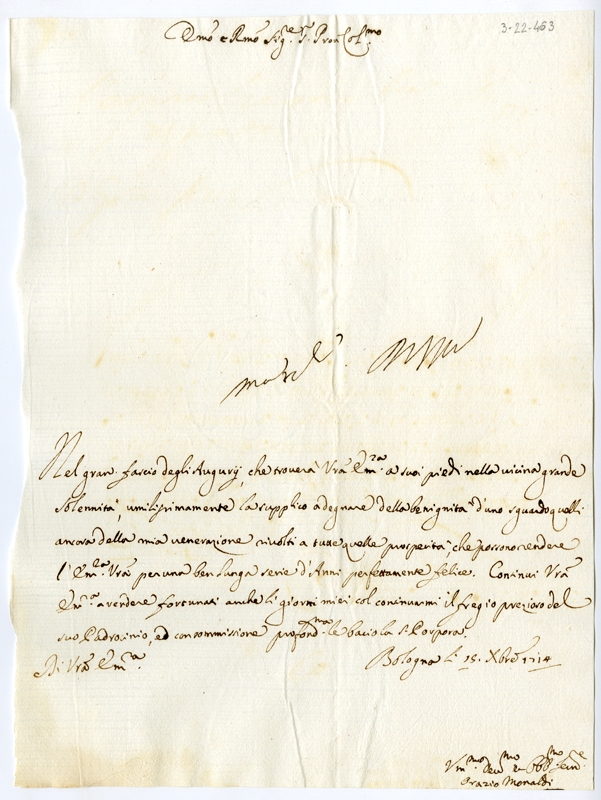 3-22-463
Em̃o e Rm̃o Sig.e P. Pron Col.mo
Nel gran fascio degli Augurij, che troverà Vrã Em.za a suoi piedi nella vicina grande
Solennità, umilissimamente la supplico a degnare della benignità d'uno sguardo quelli
ancora della mia venerazione rivolti a tutte quelle prosperità, che possono rendere
l'Em.za Vrã per una ben lunga serie d'Anni perfettamente felice. Continui Vrã
Em.za a rendere fortunati anche li giorni miei col continuarmi il fregio prezioso del
suo Padrocinio, ed con somissione profond.ma le bacio la S. Porpora.
Di Vrã Em.za
Bologna li 15. Xbre 1714
Um.mo Dev.mo ed Obb.mo Serv.e
Orazio Monaldi